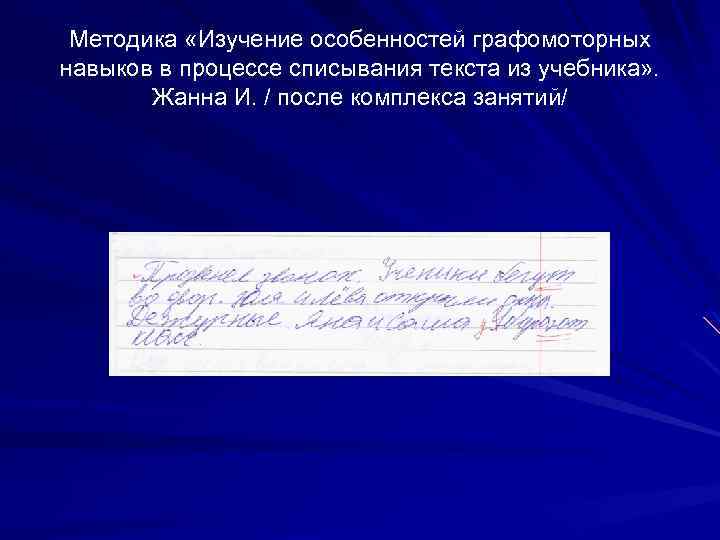 Методика «Изучение особенностей графомоторных
навыков в процессе списывания текста из учебника» .
Жанна И. / после комплекса занятий/
Прозвенел звонок. Ученики бегут
во двор. Коля и Лёва открыли окно.
Дежурные Яна и Саша убирают
класс.